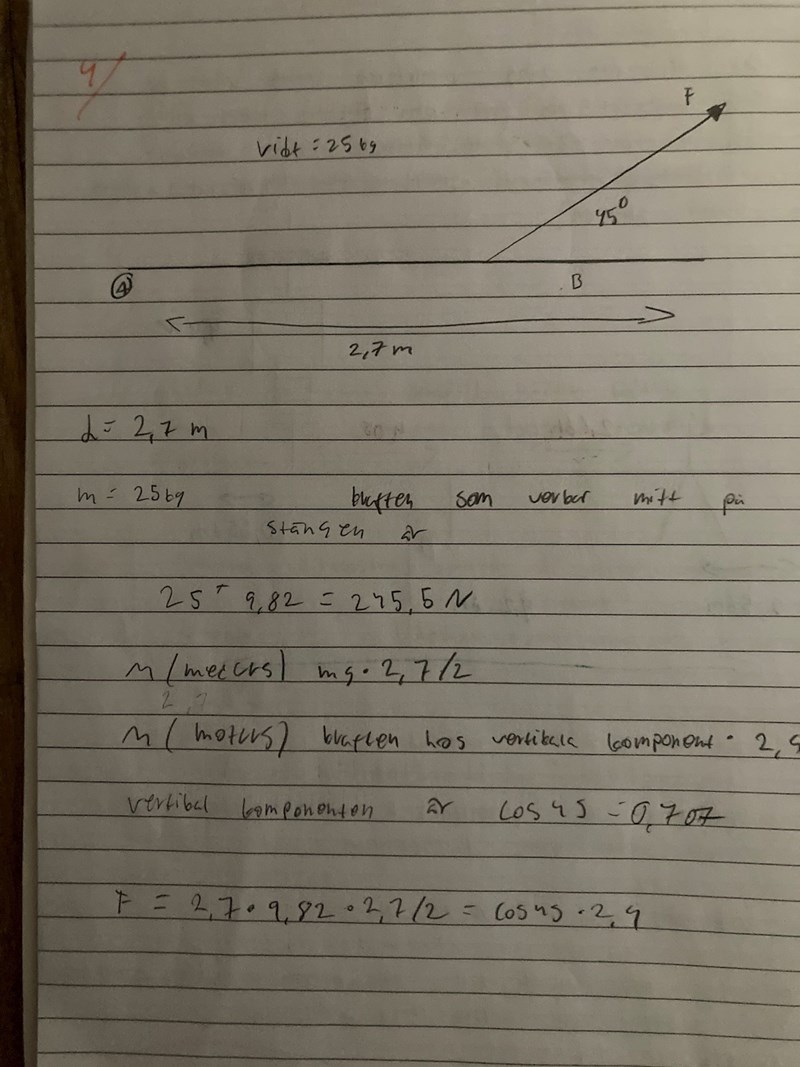 4/
F
vikt = 25 kg
45°
A
B
2,7 m
d = 2,7 m
m = 25 kg kraften som verkar mitt på
stången är
25 * 9,82 = 245,5 N
M (medurs) mg · 2,7/2
2,7
M (moturs) kraften hos vertikala komponent · 2,4
vertikal komponenten är cos 45 = 0,707
F = 2,7 · 9,82 · 2,7/2 = cos 45 · 2,4